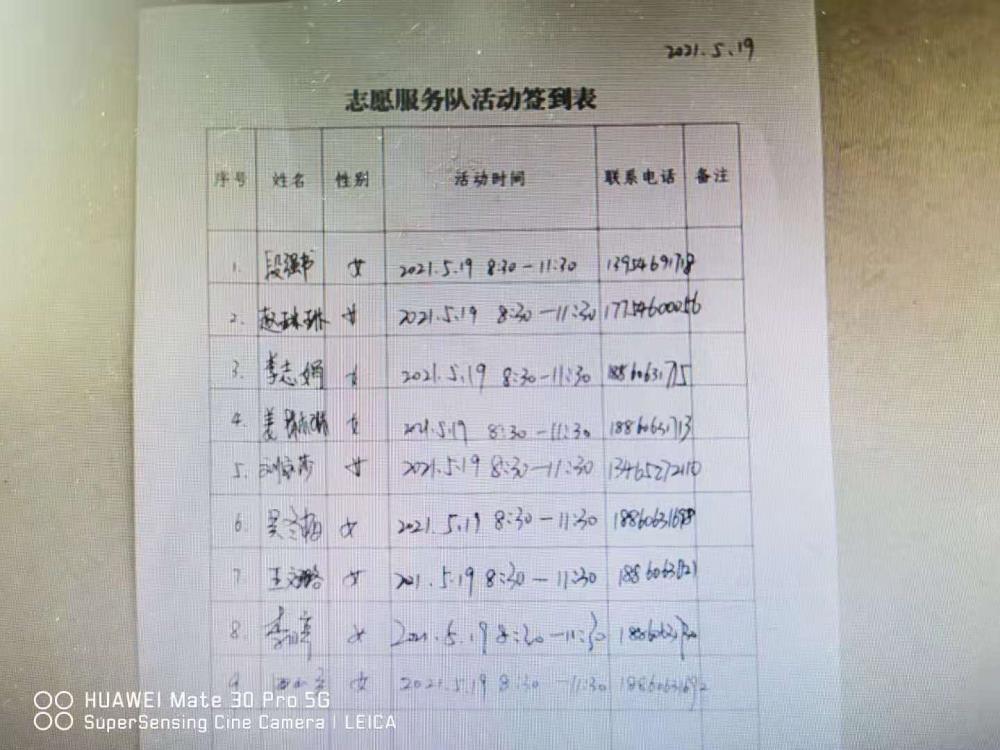 2021.5.19
志愿服务队活动签到表
序号 姓名 性别 活动时间 联系电话 备注
1. 段强书 女 2021.5.19 8:30-11:30 13954691718
2. 赵琳琳 女 2021.5.19 8:30-11:30 17754600056
3. 李志娟 女 2021.5.19 8:30-11:30
4. 姜 女 2021.5.19 8:30-11:30 18860631713
5. 女 2021.5.19 8:30-11:30 13465272110
6. 吴冬梅 女 2021.5.19 8:30-11:30
7. 王 女 2021.5.19 8:30-11:30
8. 女 2021.5.19 8:30-11:30
9. 女 2021.5.19 8:30-11:30 18860631692
HUAWEI Mate 30 Pro 5G
SuperSensing Cine Camera | LEICA